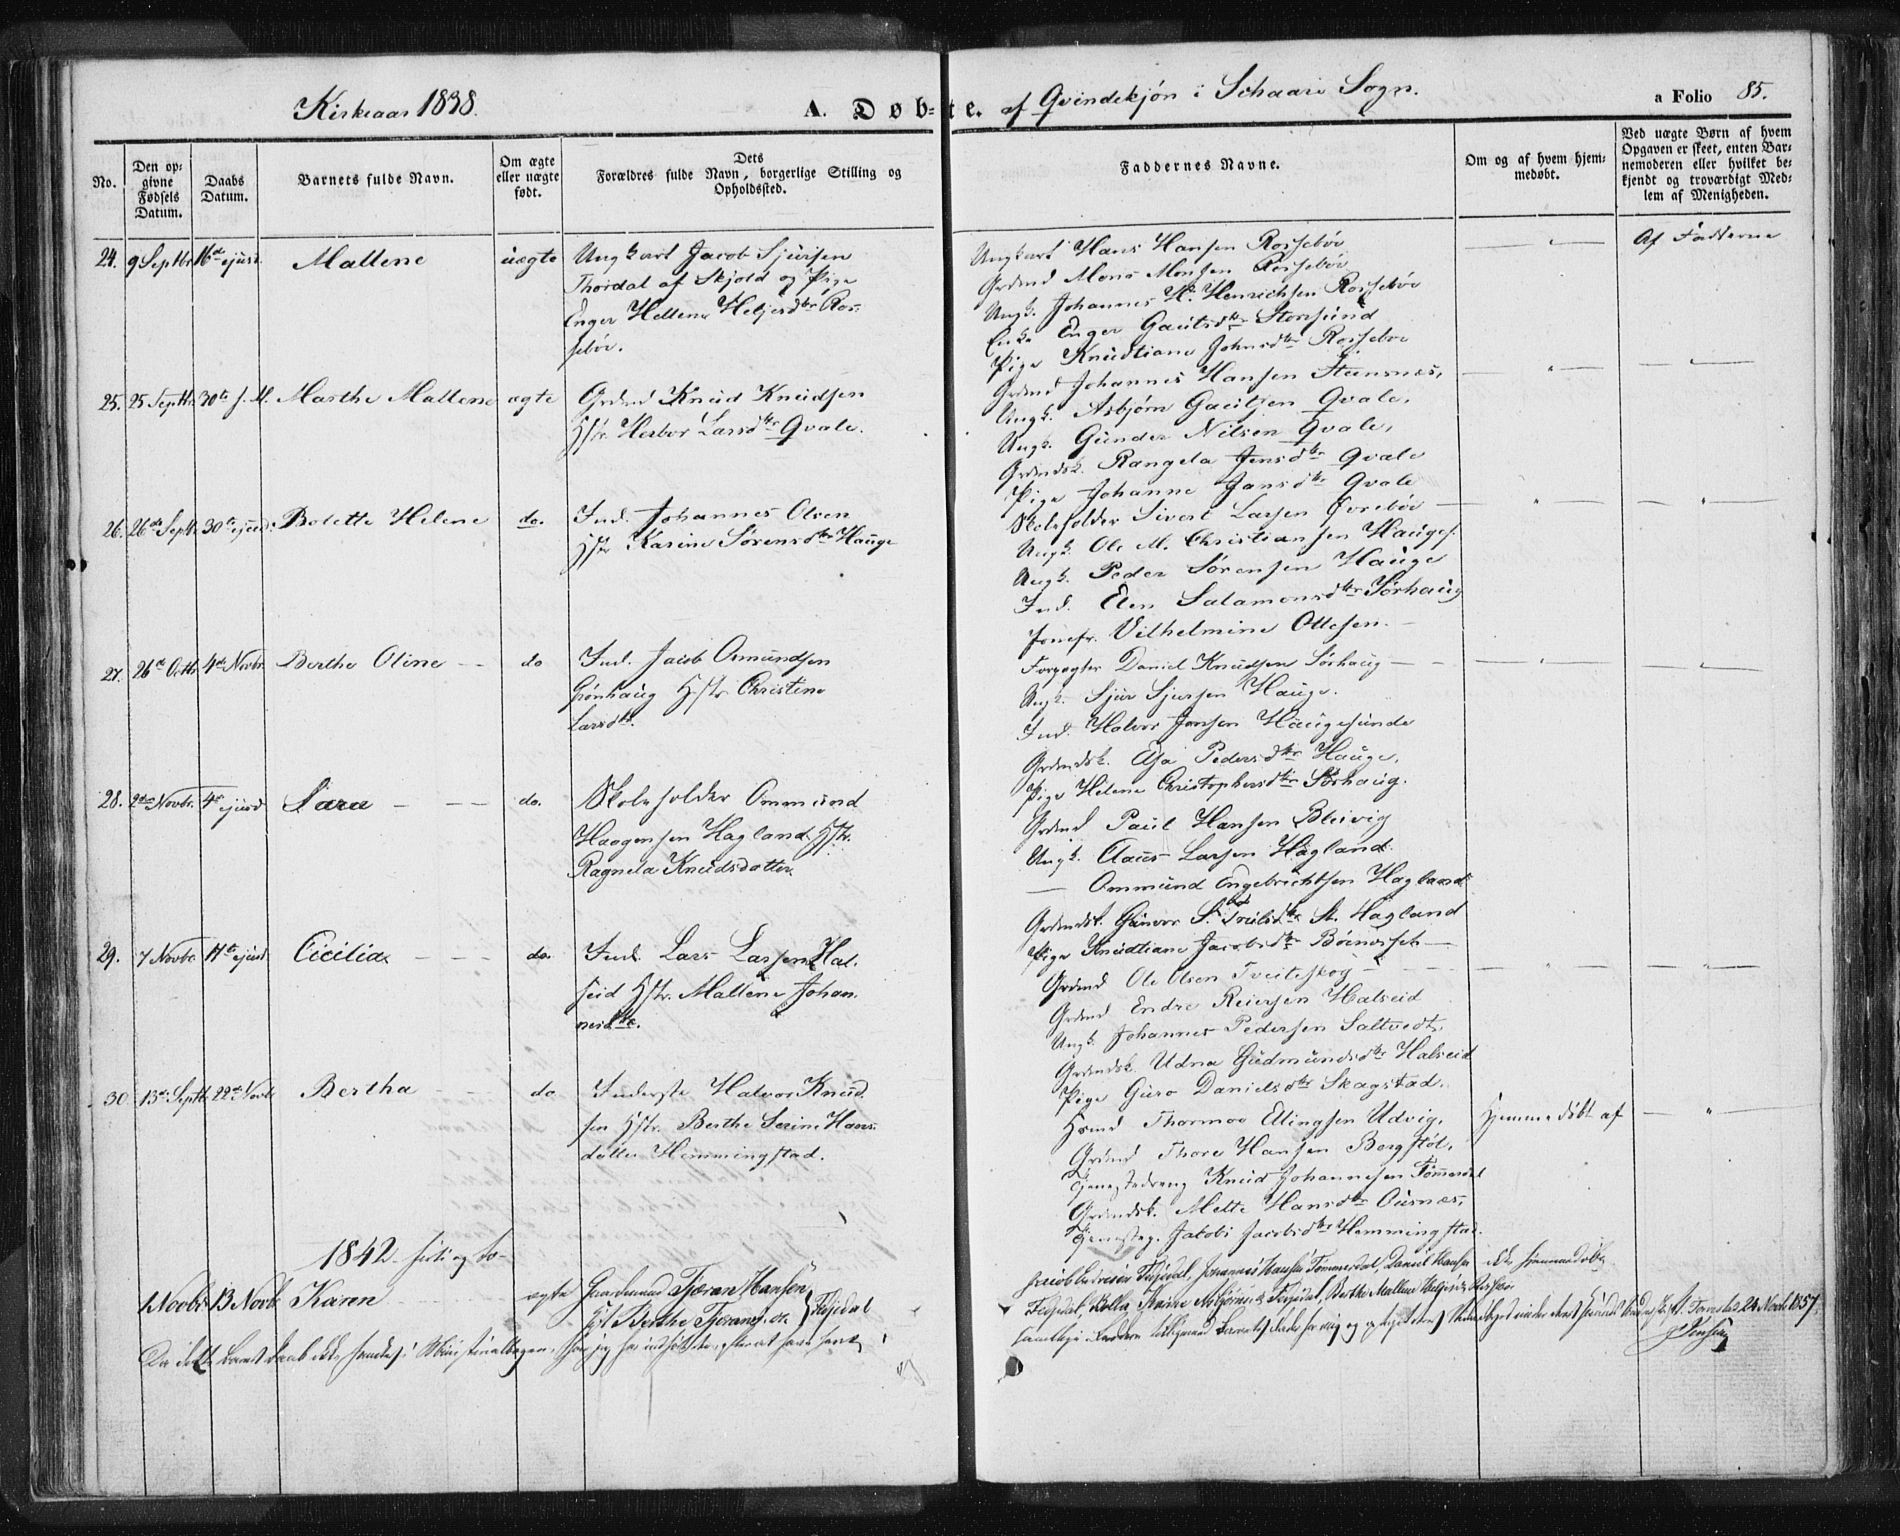 Kirkeaar 1838.
A. Døb-te. af Qvindekjøn i Schaare Sogn.
a Folio 85.
No.
Den op-
givne
Fødsels
Datum.
Daabs
Datum.
Barnets fulde Navn.
Om ægte
eller uægte
født.
Dets
Forældres fulde Navn, borgerlige Stilling og
Opholdssted.
Faddernes Navne.
Om og af hvem hjem-
medøbt.
Ved uægte Børn af hvem
Opgaven er skeet, enten Bar-
nemoderen eller hvilket be-
kjendt og troværdigt Med-
lem af Menigheden.
24. 9 Septbr 16de ejusd. Mallene uægte Ungkarl Jacob Sjursen
Thordal af Skjold og Pige
Enger Hellene Heljesdtr Ros-
sebøe.
Ungkarl Hans Hansen Rossebøe
Grdmd Mons Monsen Rossebøe
Ungk. Johannes H. Henrichsen Rossebøe
Enke Enger Gautsdtr Storesund
Pige Knudtiane Johnsdtr Rossebøe
Af Fadderne
25. 25 Septbr 30te s. M. Marthe Mallene ægte Grdmd Knud Knudsen
Hstr. Herbor Larsdtr Qvale.
Grdmd Johannes Hansen Steensnæs,
Ungk. Asbjørn Gautsen Qvale,
Ungk. Gunder Nilsen Qvale,
Grdmdsk. Rangela Jensdtr Qvale
Pige Johanne Jansdtr Qvale
26. 26de Septbr 30te ejusd. Bolette Helene do. Ind. Johannes Olsen
Hstr Karine Sørensdtr Hauge
Skoleholder Sivert Larsen Øvrebøe
Ungk. Ole M. Christiansen Hauges.
Ungk. Peder Sørensen Hauge
Ind. Elen Salamonsdtr Sørhaug
Jomfr. Vilhelmine Ottesen.
27. 26de Octbr 4de Novbr. Berthe Oline do Ind. Jacob Osmundsen
Grønhaug Hstr. Christine
Larsdtr.
Forpagter Daniel Knudsen Sørhaug
Ungk. Sjur Sjursen Hauge.
Ind. Halvor Jonsen Haugesunde
Grdmdsk. Asa Pedersdtr Hauge,
Pige Helene Christophersdtr Sørhaug.
28. 2den Novbr. 4de ejusd Sara do. Skoleholder Ommund
Haagensen Hagland Hstr.
Ragnela Knudsdatter
Grdmd Paul Hansen Bleivig
Ungk. Claus Larsen Hagland.
— Ommund Engebrichtsen Hagland
Grdmdsk. Gunvor S. Troulsdtr St. Hagland
Pige Knudtiane Jacobsdtr
29. 7 Novbr 11te ejusd Cicilia do. Ind. Lars Larsen Hal-
seid Hstr. Mallene Johan-
nesdtr.
Grdmd Ole Olsen Tveiteskog
Grdmd Endre Reiersen Halseid
Ungk. Johannes Pedersen Saltvedt,
Grdmdsk. Udna Gudmundsdtr Halseid
Pige Guro Danielsdtr Skagstad.
30 13de Septbr 22de Novbr Bertha do Inderste Halvor Knud-
sen Hstr. Berthe Serine Hans-
datter Hemmingstad.
Hsmd Thormoe Ellingsen Udvig,
Grdmd Thore Hansen Bergstøl,
Tjenestedreng Knud Johannesen Tømmerdal
Grdmdsk. Mette Hansdtr Ousnæs,
Tjenestep. Jacobi Jacobsdtr Hemmingstad.
Hjemmedøbt af
1842
1 Novbr 13 Novb. Karen ægte Gaardmand Tjeran Hansen
Hst Berthe Fosjedal
Jacob Endresen Fosjedal, Johannes Hansen Tømmerdal, Daniel Hansen
Fosjedal,
ikke hjemmedøbt
24 Novbr 1857.
Da dette Barns Daab ikke fandtes i Ministerialbogen,
Jensen